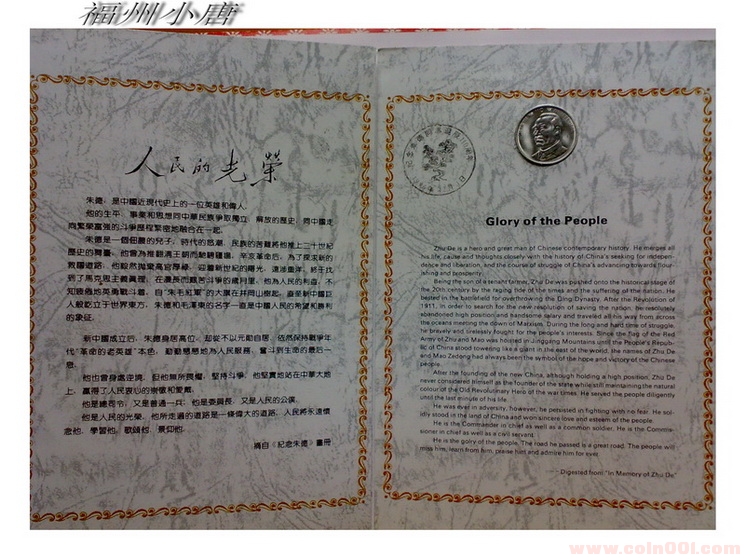 福州小唐
人民的光榮
朱德，是中國近現代史上的一位英雄和偉人。
他的生平、事業和思想同中華民族爭取獨立、解放的歷史，同中國走
向繁榮富強的斗爭歷程緊密地融合在一起。
朱德是一個佃農的兒子，時代的怒潮、民族的苦難將他推上二十世紀
歷史的舞臺，他曾為推翻清王朝而馳騁疆場，辛亥革命后，為了探求新的
救國道路，他毅然拋棄高官厚祿，迎着新世紀的曙光，遠涉重洋，終于找
到了馬克思主義真理，在漫長而艱苦斗爭的歲月里，他為人民的利益，不
知疲倦地英勇戰斗着，自"朱毛紅軍"的大旗在井岡山樹起，直至新中國巨
人般屹立于世界東方，朱德和毛澤東的名字一直是中國人民的希望和勝利
的象征。
新中國成立后，朱德身居高位，却從不以元勛自居，依然保持戰爭年
代"革命的老英雄"本色，勤勤懇懇地為人民服務，奮斗到生命的最后一
息。
他也曾身處逆境，但他無所畏懼，堅持斗爭，他堅實地站在中華大地
上，贏得了人民衷心的崇敬和愛戴。
他是總司令，又是普通一兵；他是委員長，又是人民的公僕。
他是人民的光榮，他所走過的道路是一條偉大的道路，人民將永遠懷
念他、學習他、歌頌他、景仰他。
摘自《紀念朱德》畫冊
Glory of the People
Zhu De is a hero and great man of Chinese contemporary history. He merges all
his life, cause and thoughts closely with the history of China's seeking for indepen-
dence and liberation, and the course of struggle of China's advancing towards flour-
ishing and prosperity.
Being the son of a tenant farmer, Zhu De was pushed onto the historical stage of
the 20th century by the raging tide of the times and the suffering of the nation. He
batted in the battlefield for overthrowing the Qing Dynasty. After the Revolution of
1911, in order to search for the new resolution of saving the nation, he resolutely
abandoned high position and handsome salary and traveled all his way from across
the oceans meeting the dawn of Marxism. During the long and hard time of struggle,
he bravely and tirelessly fought for the people's interests. Since the flag of the Red
Army of Zhu and Mao was hoisted in Jinggang Mountains until the People's Repub-
lic of China stood towering like a giant in the east of the world, the names of Zhu De
and Mao Zedong had always been the symbol of the hope and victory of the Chinese
people.
After the founding of the new China, although holding a high position, Zhu De
never considered himself as the founder of the state while still maintaining the natural
colour of the Old Revolutionary Hero of the war times. He served the people diligently
until the last minute of his life.
He was ever in adversity, however, he persisted in fighting with no fear. He sol-
idly stood in the land of China and won sincere love and esteem of the people.
He is the Commander in chief as well as a common soldier. He is the Commis-
sioner in chief as well as a civil servant.
He is the golry of the people. The road he passed is a great road. The people will
miss him, learn from him, praise him and admire him for ever.
---- Digested from "In Memory of Zhu De"
www.coin001.com